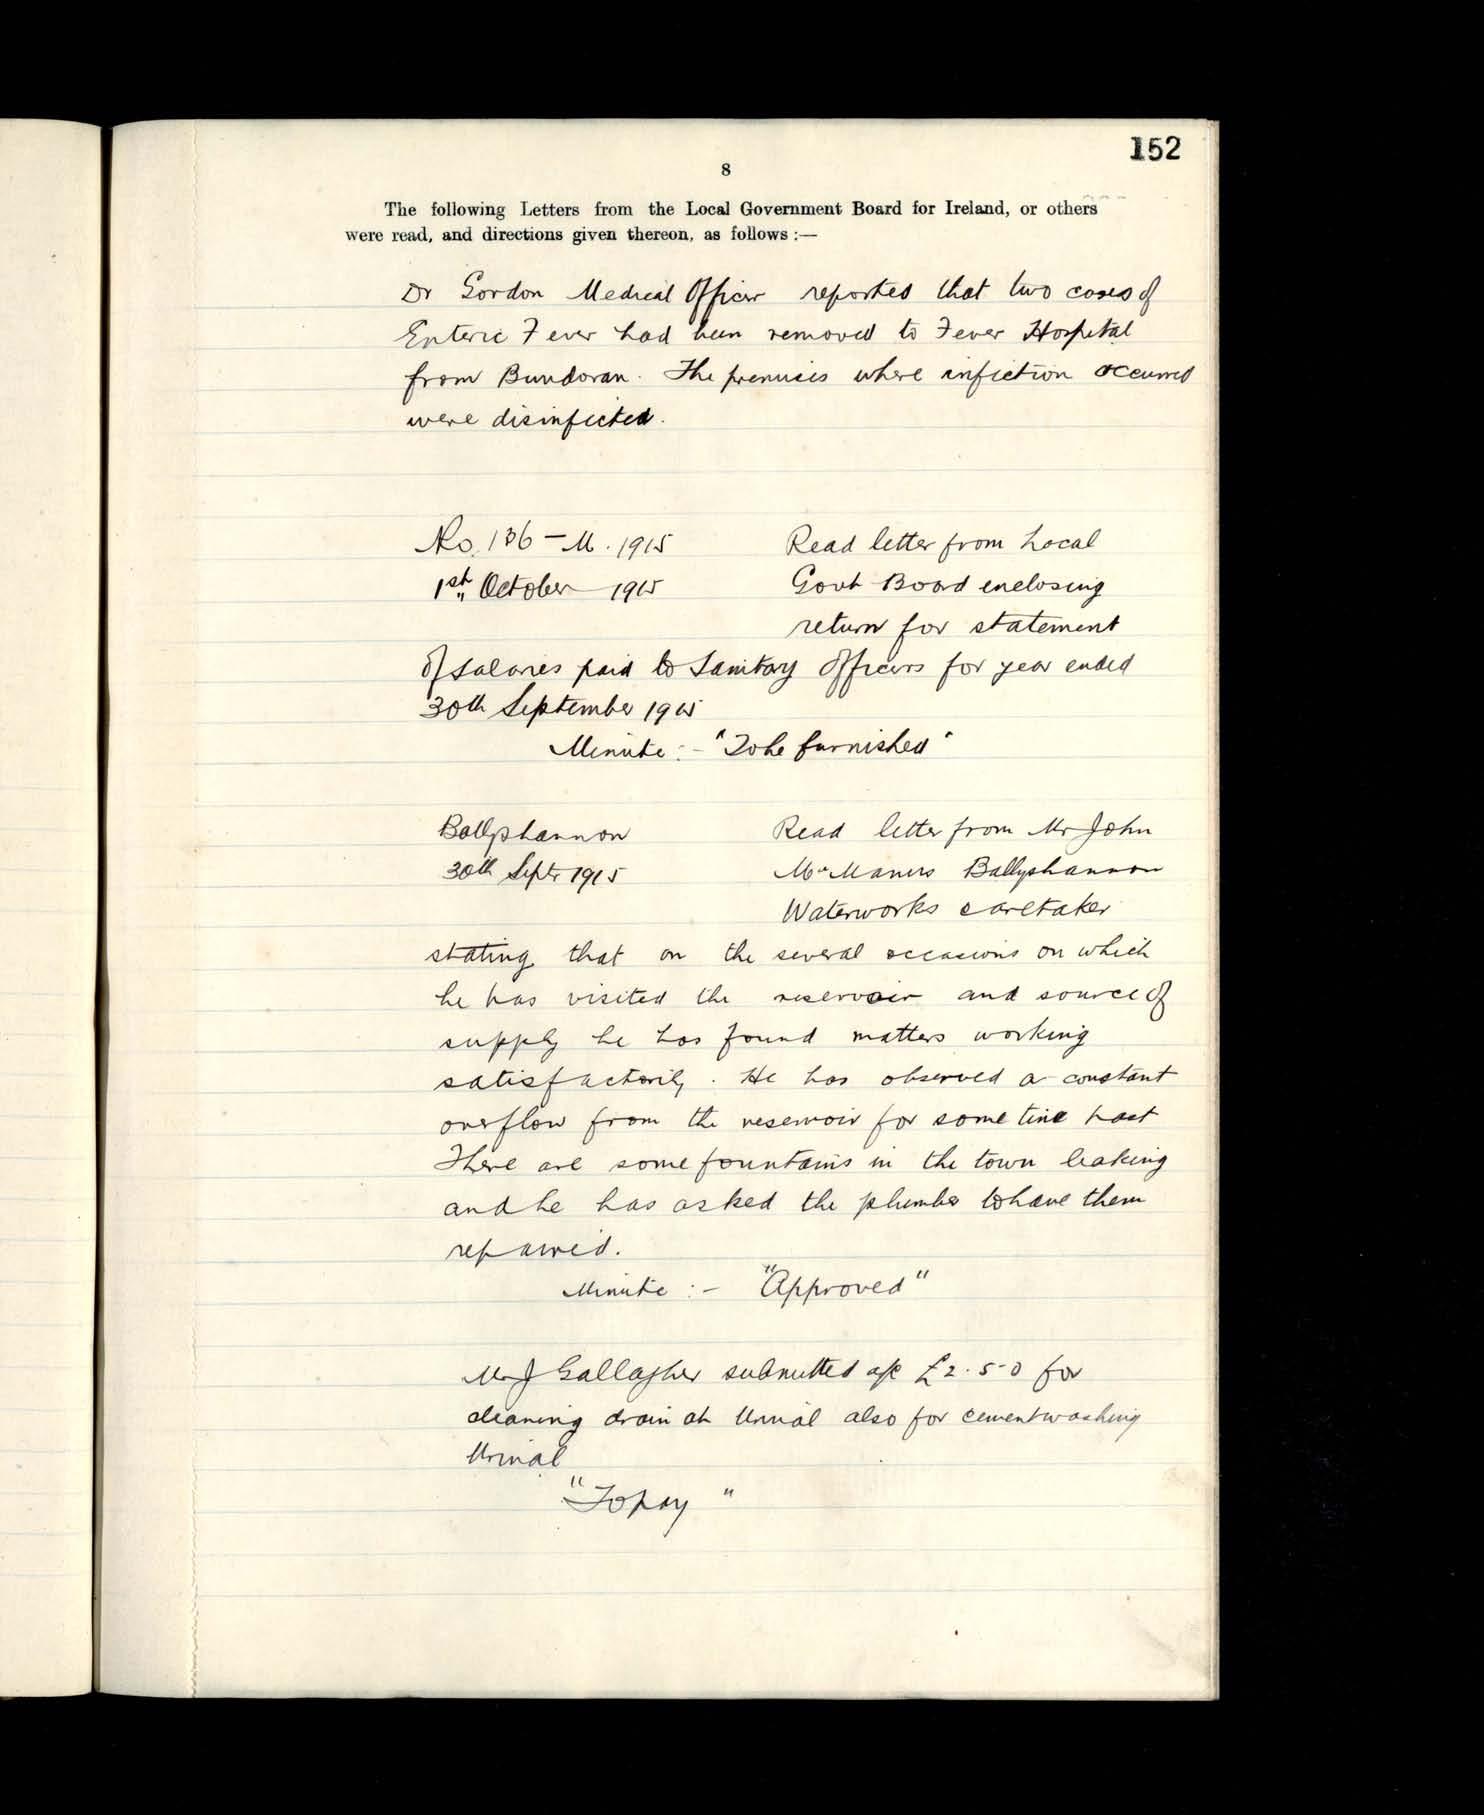 152
8
The following Letters from the Local Government Board for Ireland, or others
were read, and directions given thereon, as follows :—
Dr Gordon Medical Officer reported that two cases of
Enteric Fever had been removed to Fever Hospital
from Bundoran. The premises where infection occurred
were disinfected.
No. 136 – M. 1915 Read letter from Local
1st October 1915 Govt Board enclosing
return for statement
of salaries paid to Sanitary Officers for year ended
30th September 1915
Minute :- "To be furnished"
Ballyshannon Read letter from Mr John
30th Septr 1915 McManus Ballyshannon
Waterworks caretaker
stating that on the several occasions on which
he has visited the reservoir and source of
supply he has found matters working
satisfactorily. He has observed a constant
overflow from the reservoir for some time past
There are some fountains in the town leaking
and he has asked the plumber to have them
repaired.
Minute :- "Approved"
Mr J Gallagher submitted a/c £2-5-0 for
cleaning drain at Urinal also for cementwashing
Urinal
"To pay"